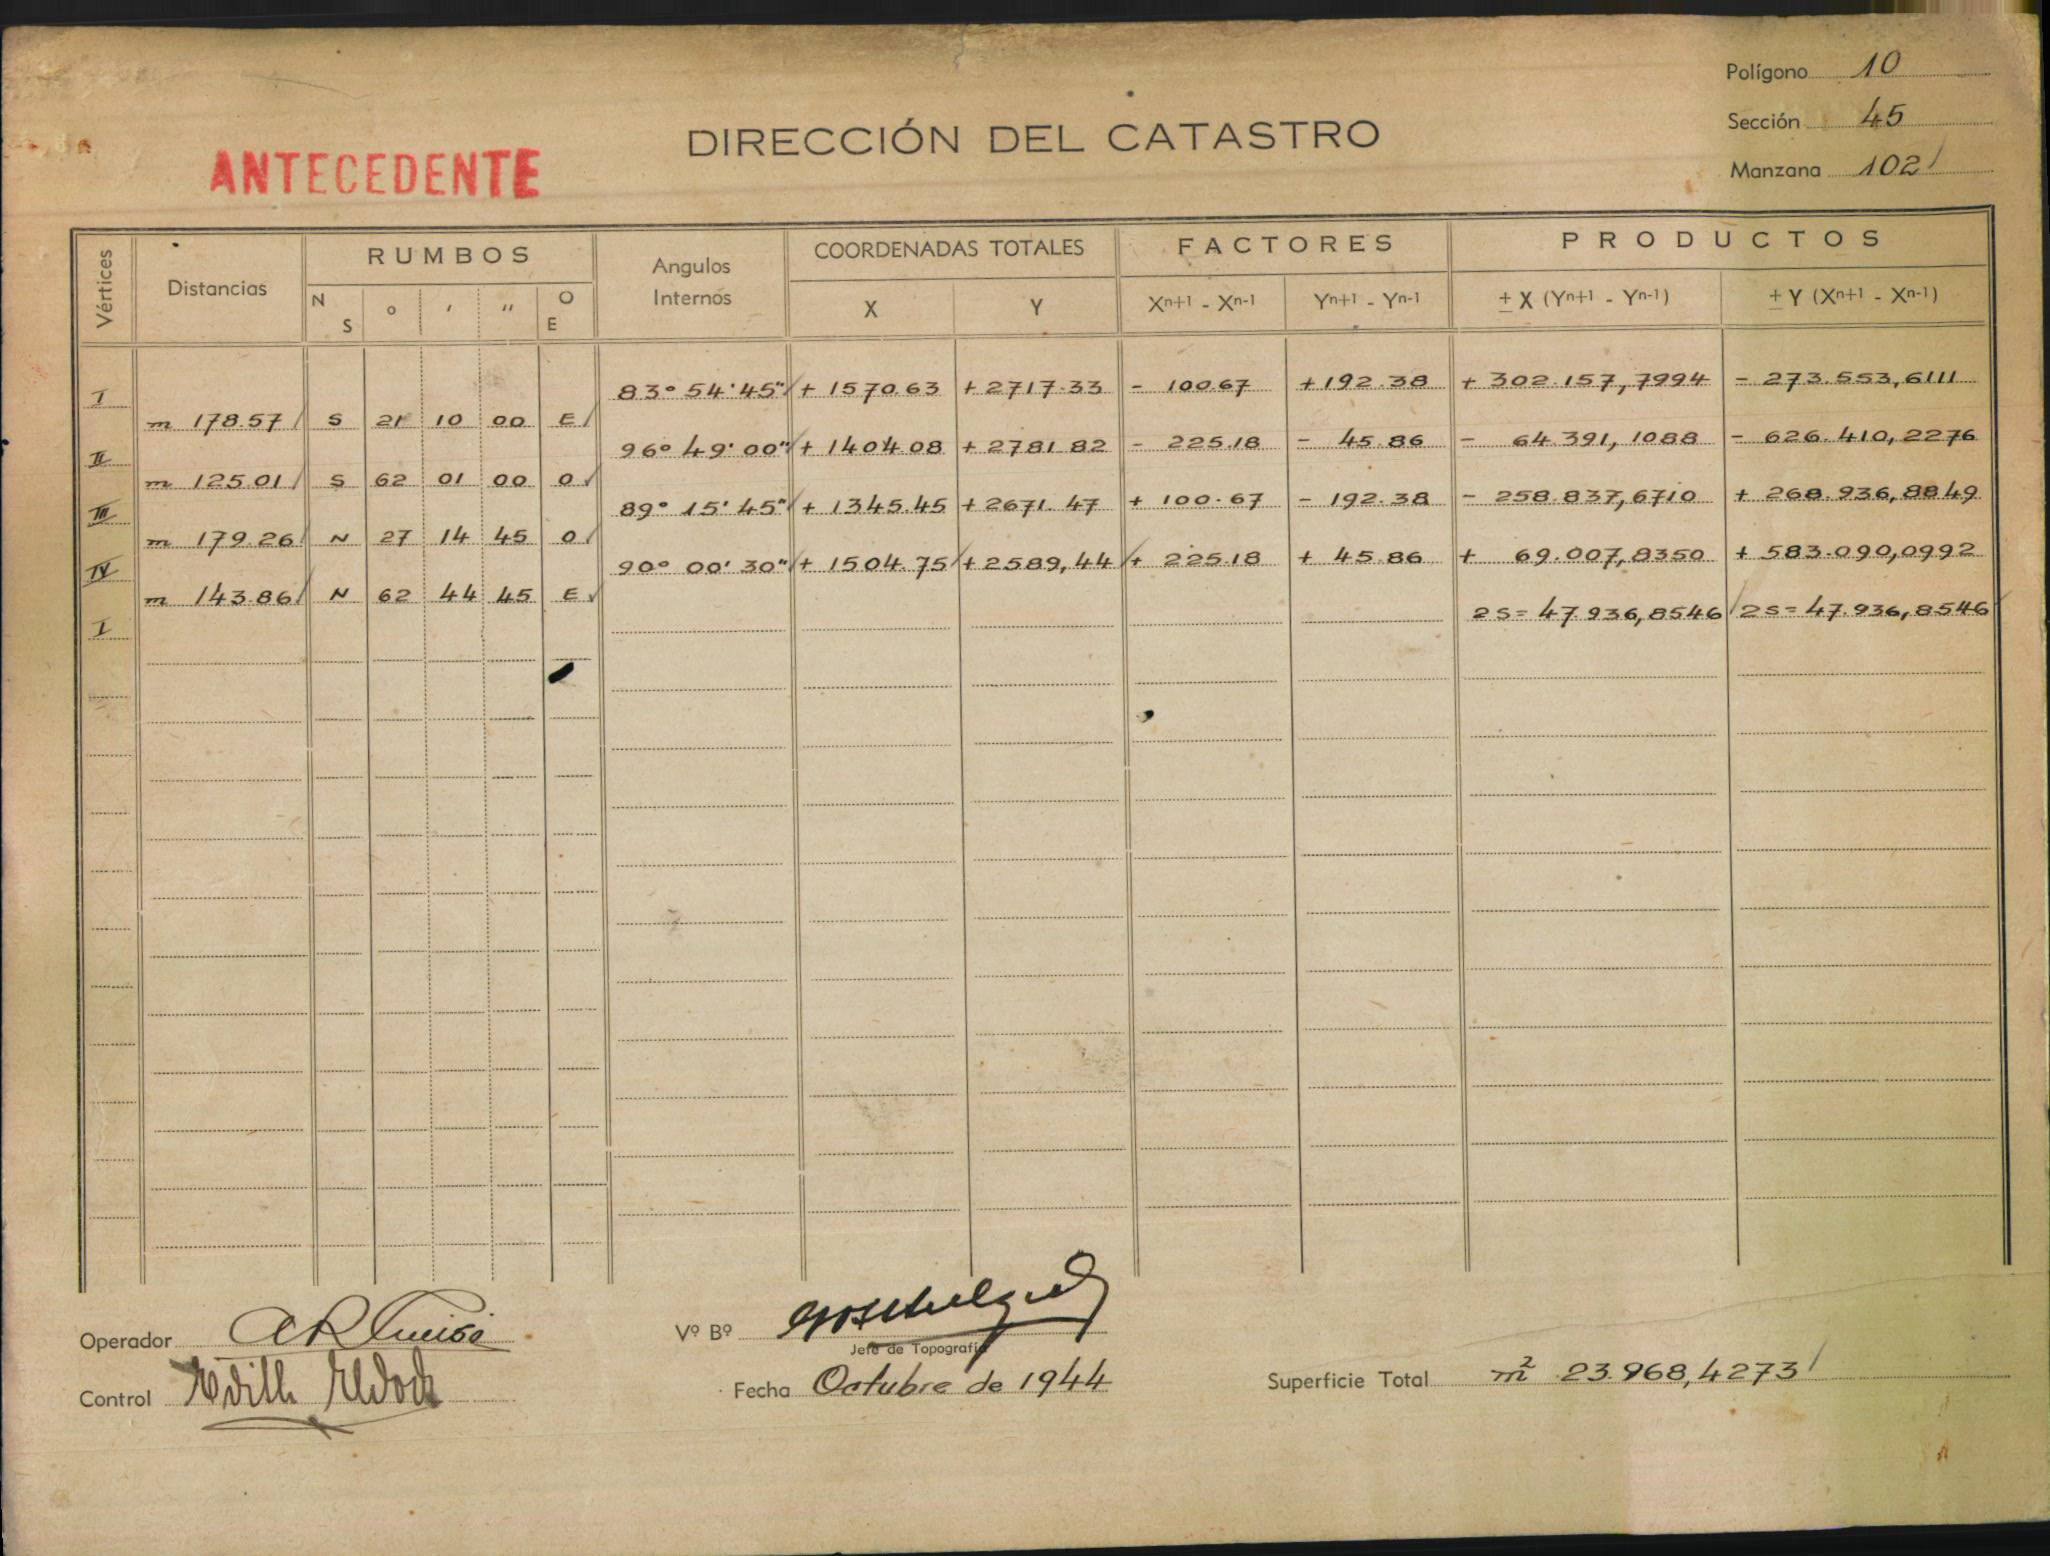 Polígono 10
Sección 45
Manzana 102
DIRECCIÓN DEL CATASTRO
ANTECEDENTE
Vértices Distancias RUMBOS Angulos Internos COORDENADAS TOTALES FACTORES PRODUCTOS
N S ° ' " O E X Y Xn+1 - Xn-1 Yn+1 - Yn-1 ± X (Yn+1 - Yn-1) ± Y (Xn+1 - Xn-1)
I 83° 54' 45" + 1570.63 + 2717.33 - 100.67 + 192.38 + 302.157,7994 - 273.553,6111
m 178.57 S 21 10 00 E
II 96° 49' 00" + 1404.08 + 2781.82 - 225.18 - 45.86 - 64.391,1088 - 626.410,2276
m 125.01 S 62 01 00 O
III 89° 15' 45" + 1345.45 + 2671.47 + 100.67 - 192.38 - 258.837,6710 + 268.936,8849
m 179.26 N 27 14 45 O
IV 90° 00' 30" + 1504.75 + 2589,44 + 225.18 + 45.86 + 69.007,8350 + 583.090,0992
m 143.86 N 62 44 45 E
I 2S = 47.936,8546 2S = 47.936,8546
Operador
Vº Bº
Jefe de Topografía
Control Edith
Fecha Octubre de 1944
Superficie Total m² 23.968,4273